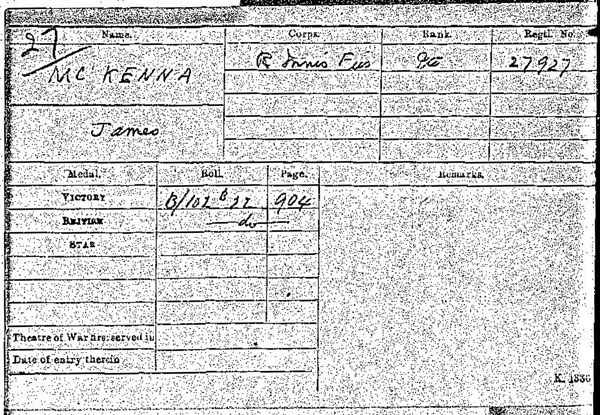 Name. Corps. Rank. Regtl. No.
27
MC KENNA R Innis Fus Pte 27927
James
Medal. Roll. Page. Remarks.
VICTORY B/102 B 22 904
BRITISH — do —
STAR
Theatre of War first served in
Date of entry therein
K. 1336